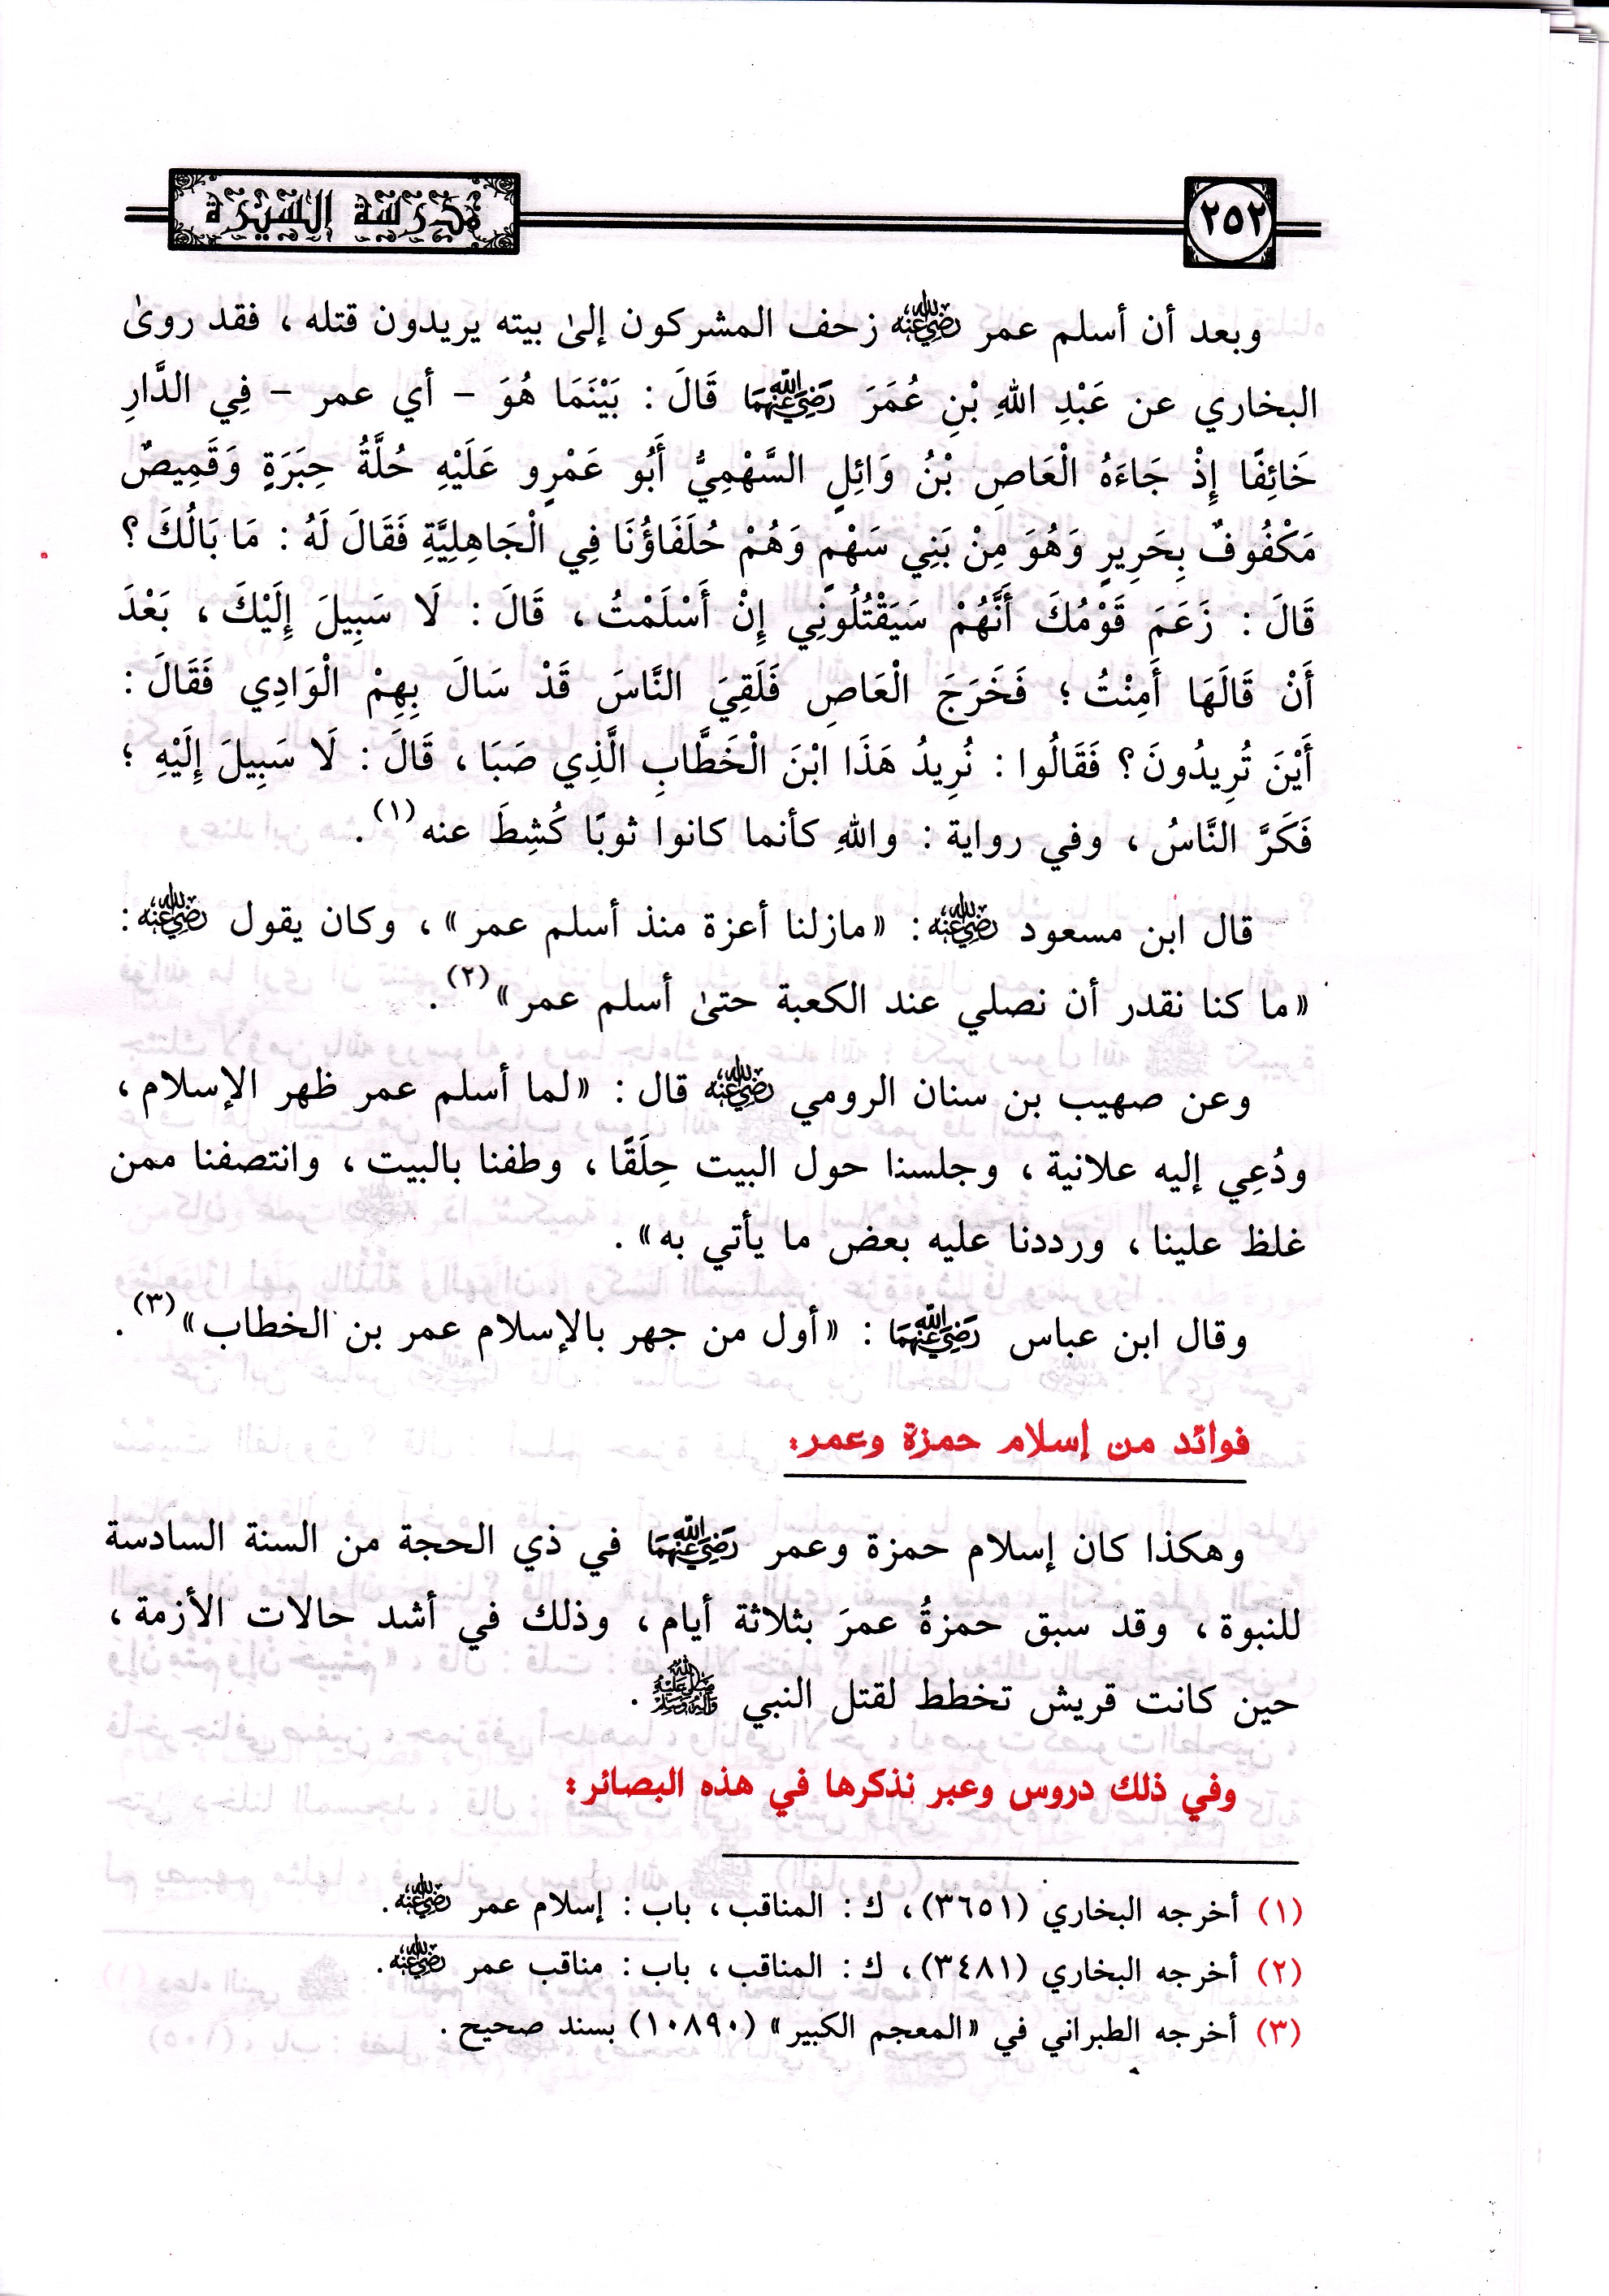 ٢٥٢
مدرسة السيرة
وبعد أن أسلم عمر رضي الله عنه زحف المشركون إلىٰ بيته يريدون قتله، فقد روىٰ
البخاري عن عَبْدِ اللهِ بْنِ عُمَرَ رضي الله عنهما قَالَ: بَيْنَمَا هُوَ – أي عمر – فِي الدَّارِ
خَائِفًا إِذْ جَاءَهُ الْعَاصِ بْنُ وَائِلٍ السَّهْمِيُّ أَبُو عَمْرٍو عَلَيْهِ حُلَّةُ حِبَرَةٍ وَقَمِيصٌ
مَكْفُوفٌ بِحَرِيرٍ وَهُوَ مِنْ بَنِي سَهْمٍ وَهُمْ حُلَفَاؤُنَا فِي الْجَاهِلِيَّةِ فَقَالَ لَهُ: مَا بَالُكَ؟
قَالَ: زَعَمَ قَوْمُكَ أَنَّهُمْ سَيَقْتُلُونِي إِنْ أَسْلَمْتُ، قَالَ: لَا سَبِيلَ إِلَيْكَ، بَعْدَ
أَنْ قَالَهَا أَمِنْتُ؛ فَخَرَجَ الْعَاصِ فَلَقِيَ النَّاسَ قَدْ سَالَ بِهِمْ الْوَادِي فَقَالَ:
أَيْنَ تُرِيدُونَ؟ فَقَالُوا: نُرِيدُ هَذَا ابْنَ الْخَطَّابِ الَّذِي صَبَا، قَالَ: لَا سَبِيلَ إِلَيْهِ؛
فَكَرَّ النَّاسُ، وفي رواية: واللهِ كأنما كانوا ثوبًا كُشِطَ عنه(١).
قال ابن مسعود رضي الله عنه: «مازلنا أعزة منذ أسلم عمر»، وكان يقول رضي الله عنه:
«ما كنا نقدر أن نصلي عند الكعبة حتىٰ أسلم عمر»(٢).
وعن صهيب بن سنان الرومي رضي الله عنه قال: «لما أسلم عمر ظهر الإسلام،
ودُعِي إليه علانية، وجلسنا حول البيت حِلَقًا، وطفنا بالبيت، وانتصفنا ممن
غلظ علينا، ورددنا عليه بعض ما يأتي به».
وقال ابن عباس رضي الله عنهما: «أول من جهر بالإسلام عمر بن الخطاب»(٣).
فوائد من إسلام حمزة وعمر:
وهكذا كان إسلام حمزة وعمر رضي الله عنهما في ذي الحجة من السنة السادسة
للنبوة، وقد سبق حمزةُ عمرَ بثلاثة أيام، وذلك في أشد حالات الأزمة،
حين كانت قريش تخطط لقتل النبي ﷺ.
وفي ذلك دروس وعبر نذكرها في هذه البصائر:
(١) أخرجه البخاري (٣٦٥١)، ك: المناقب، باب: إسلام عمر رضي الله عنه.
(٢) أخرجه البخاري (٣٤٨١)، ك: المناقب، باب: مناقب عمر رضي الله عنه.
(٣) أخرجه الطبراني في «المعجم الكبير» (١٠٨٩٠) بسند صحيح.